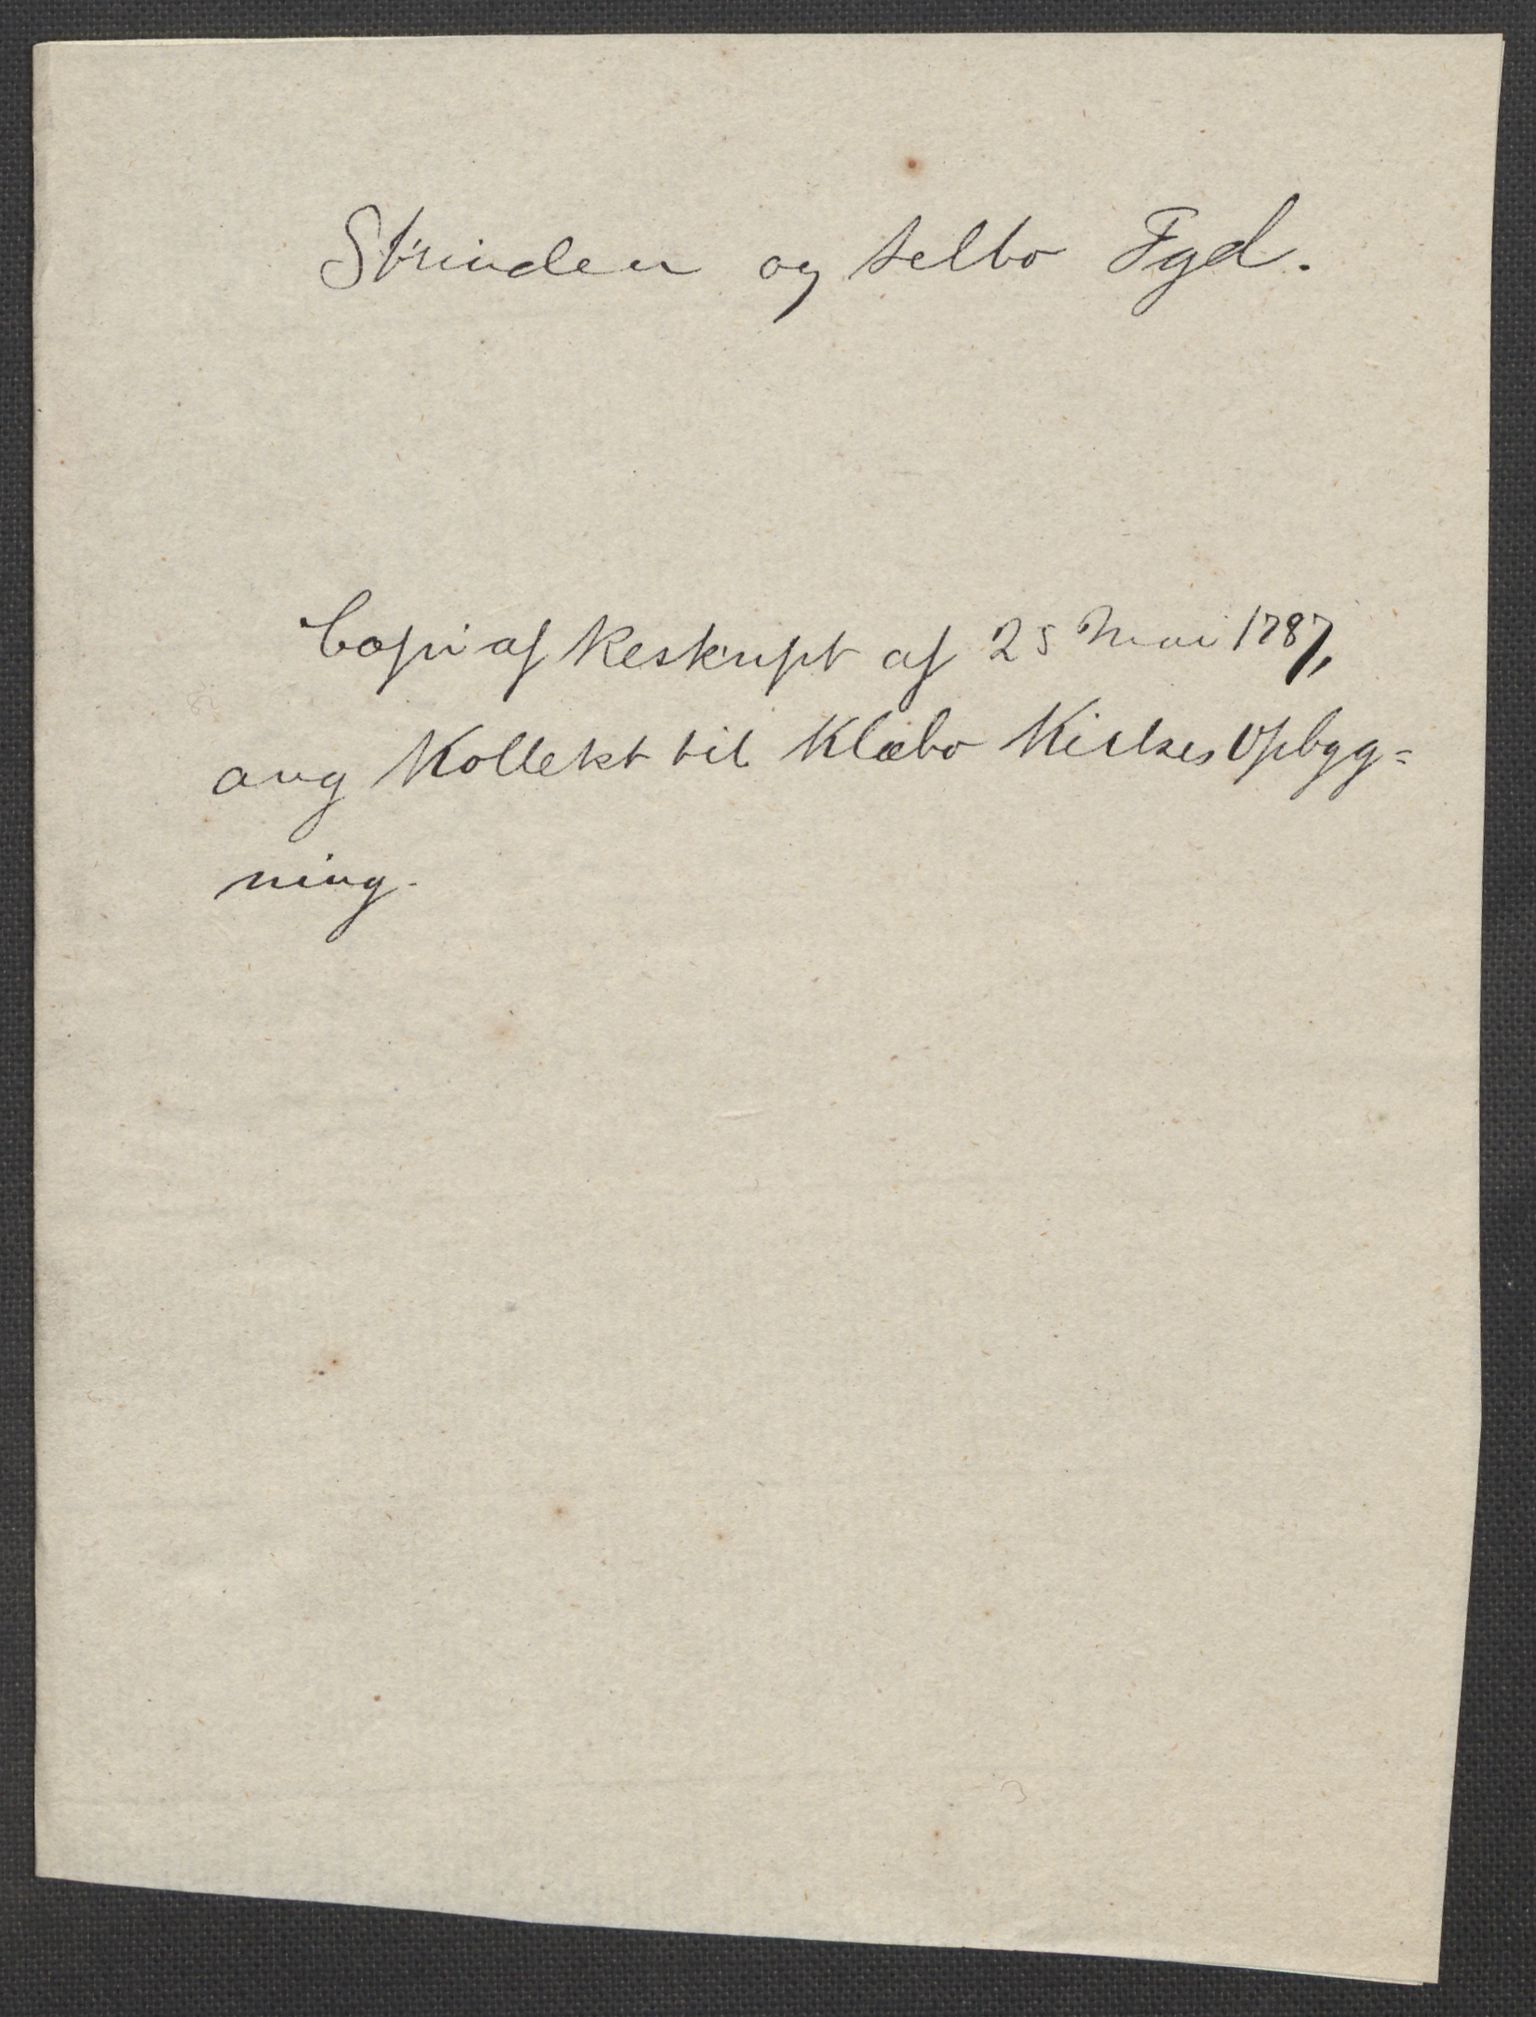 Strinden og Selbo Fgd.
Copi af Reskript af 25 Mai 1787,
ang Kollekt til Klæbo Kirkes Opbyg=
ning.